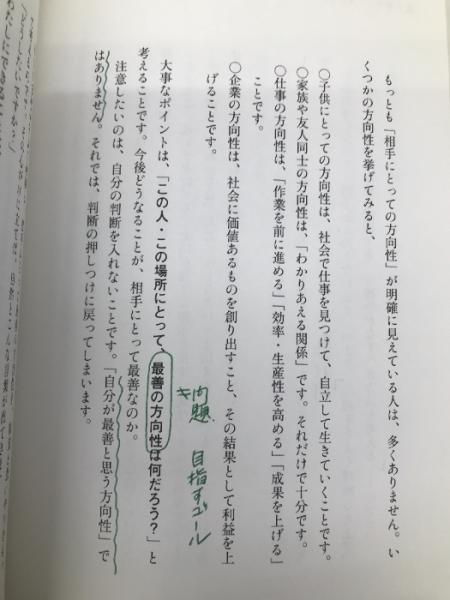 もっとも「相手にとっての方向性」が明確に見えている人は、多くありません。い
くつかの方向性を挙げてみると、
○子供にとっての方向性は、社会で仕事を見つけて、自立して生きていくことです。
○家族や友人同士の方向性は、「わかりあえる関係」です。それだけで十分です。
○仕事の方向性は、「作業を前に進める」「効率・生産性を高める」「成果を上げる」
ことです。
○企業の方向性は、社会に価値あるものを創り出すこと、その結果として利益を上
げることです。
問題 目指すゴール
大事なポイントは、「この人・この場所にとって、最善の方向性は何だろう?」と
考えることです。今後どうなることが、相手にとって最善なのか。
注意したいのは、自分の判断を入れないことです。「自分が最善と思う方向性」で
はありません。それでは、判断の押しつけに戻ってしまいます。